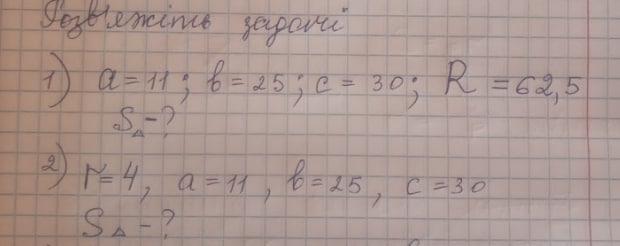 Розв'яжіть задачі
1) a = 11; b = 25; c = 30; R = 62,5
S△ - ?
2) r = 4, a = 11, b = 25, c = 30
S△ - ?